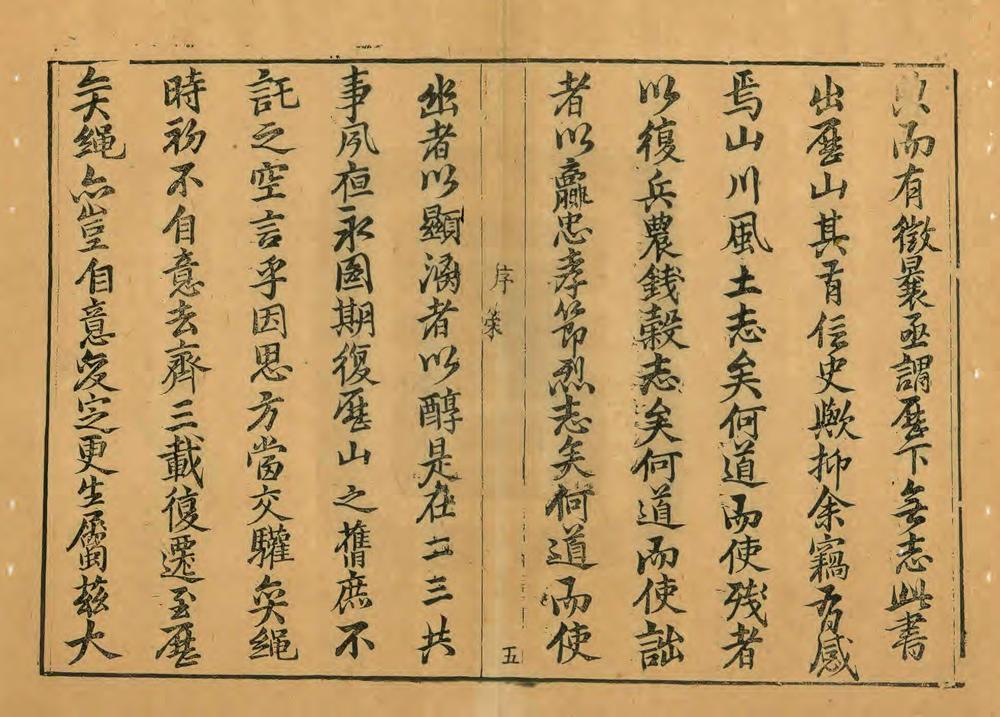 以而有徵曩亟謂歷下無志此書
出歷山其有信史歟抑余竊有感
焉山川風土志矣何道而使殘者
以復兵農錢穀志矣何道而使詘
者以羸忠孝節烈志矣何道而使
序
五
幽者以顯漓者以醇是在二三共
事夙夜永圖期復歷山之舊庶不
託之空言乎因思方當交驩奐繩
時初不自意去齊三載復遷至歷
奐繩亦豈自意爰定更生屬茲大